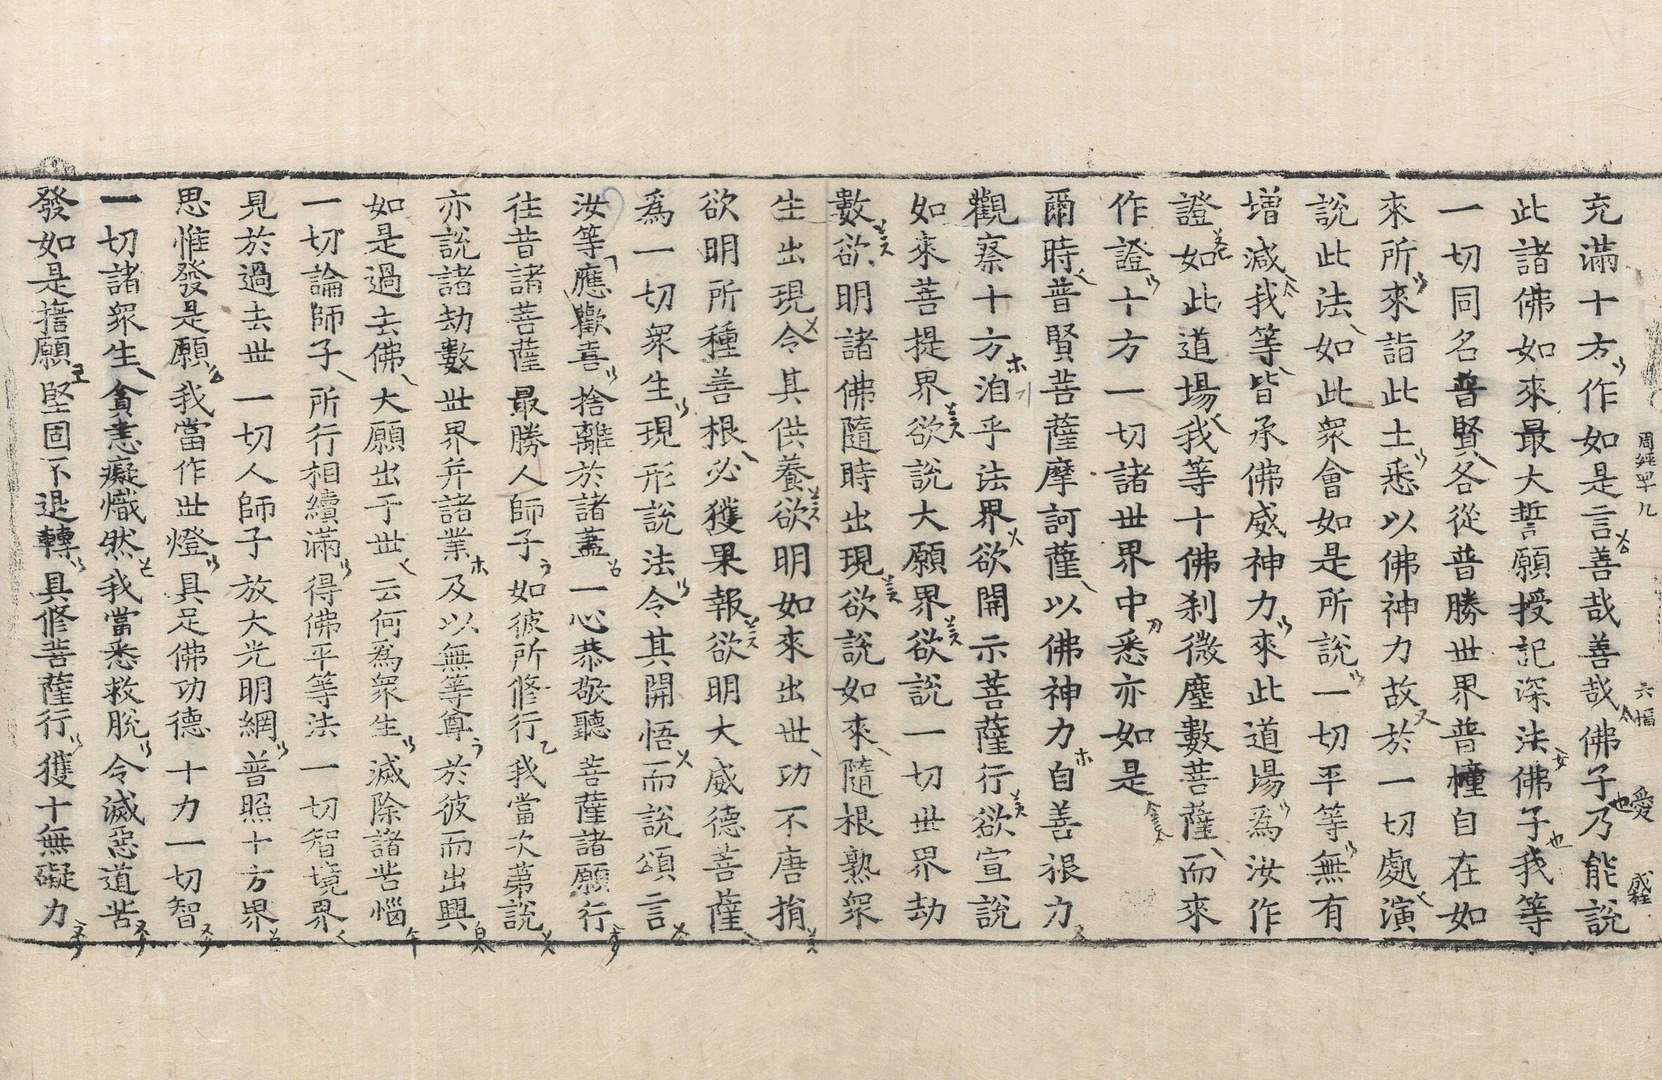 充滿十方作如是言善哉善哉佛子乃能說
此諸佛如來最大誓願授記深法佛子我等
一切同名普賢各從普勝世界普幢自在如
來所來詣此土悉以佛神力故於一切處演
說此法如此衆會如是所說一切平等無有
增減我等皆承佛威神力來此道場爲汝作
證如此道場我等十佛刹微塵數菩薩而來
作證十方一切諸世界中悉亦如是
爾時普賢菩薩摩訶薩以佛神力自善根力
觀察十方洎乎法界欲開示菩薩行欲宣說
如來菩提界欲說大願界欲說一切世界劫
數欲明諸佛隨時出現欲說如來隨根熟衆
生出現令其供養欲明如來出世功不唐捐
欲明所種善根必獲果報欲明大威德菩薩
爲一切衆生現形說法令其開悟而說頌言
汝等應歡喜 捨離於諸蓋 一心恭敬聽 菩薩諸願行
往昔諸菩薩 最勝人師子 如彼所修行 我當次第說
亦說諸劫數 世界并諸業 及以無等尊 於彼而出興
如是過去佛 大願出于世 云何爲衆生 滅除諸苦惱
一切論師子 所行相續滿 得佛平等法 一切智境界
見於過去世 一切人師子 放大光明網 普照十方界
思惟發是願 我當作世燈 具足佛功德 十力一切智
一切諸衆生 貪恚癡熾然 我當悉救脫 令滅惡道苦
發如是誓願 堅固不退轉 具修菩薩行 獲十無礙力